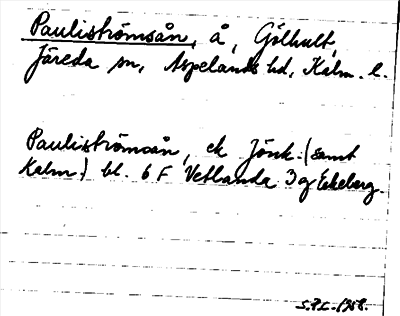 Pauliströmsån, å, Gölhult,
Järeda sn, Aspelands hd, Kalm. l.
Pauliströmsån, ek Jönk. (samt
Kalm.) bl. 6 F Vetlanda 3 g Ekeberg.
S.P.L. 1958.